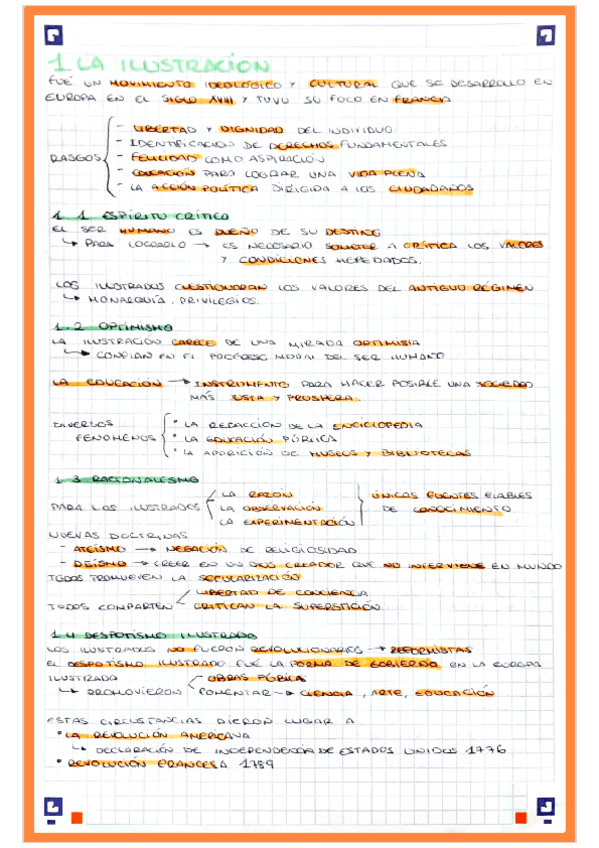 1 LA ILUSTRACIÓN
FUÉ UN MOVIMIENTO IDEOLÓGICO Y CULTURAL QUE SE DESARROLLO EN
EUROPA EN EL SIGLO XVIII Y TUVU SU FOCO EN FRANCIA
RASGOS
- LIBERTAD Y DIGNIDAD DEL INDIVIDUO
- IDENTIFICACION DE DERECHOS FUNDAMENTALES
- FELICIDAD COMO ASPIRACIÓN
- EDUCACIÓN PARA LOGRAR UNA VIDA PLENA
- LA ACCIÓN POLÍTICA DIRIGIDA A LOS CIUDADANOS
1.1 ESPÍRITU CRÍTICO
EL SER HUMANO ES DUEÑO DE SU DESTINO
↳ PARA LOGRARLO → ES NECESARIO SOMETER A CRÍTICA LOS VALORES
Y CONDICIONES HEREDADOS.
LOS ILUSTRADOS CUESTIONARAN LOS VALORES DEL ANTIGUO RÉGIMEN
↳ MONARQUÍA, PRIVILEGIOS.
1.2 OPTIMISMO
LA ILUSTRACIÓN CARECE DE UNA MIRADA OPTIMISTA
↳ CONFIAN EN EL PROGRESO MORAL DEL SER HUMANO
LA EDUCACIÓN → INSTRUMENTO PARA HACER POSIBLE UNA SOCIEDAD
MÁS JUSTA Y PROSPERA.
DIVERSOS
FENOMENOS
• LA REDACCIÓN DE LA ENCICLOPEDIA
• LA EDUCACIÓN PÚBLICA
• LA APARICIÓN DE MUSEOS Y BIBLIOTECAS
1.3 RACIONALISMO
PARA LOS ILUSTRADOS
LA RAZÓN
LA OBSERVACIÓN
LA EXPERIMENTACIÓN
ÚNICAS FUENTES FIABLES
DE CONOCIMIENTO
NUEVAS DOCTRINAS
- ATEÍSMO → NEGACIÓN DE RELIGIOSIDAD
- DEÍSMO → CREER EN UN DIOS CREADOR QUE NO INTERVIENE EN MUNDO
TODOS PROMUEVEN LA SECULARIZACIÓN
TODOS COMPARTEN
LIBERTAD DE CONCIENCIA
CRITICAN LA SUPERSTICIÓN
1.4 DESPOTISMO ILUSTRADO
LOS ILUSTRADOS NO FUERON REVOLUCIONARIOS → REFORMISTAS
EL DESPOTISMO ILUSTRADO FUÉ LA FORMA DE GOBIERNO EN LA EUROPA
ILUSTRADA
↳ PROMOVIERON
OBRAS PÚBLICA
FOMENTAR → CIENCIA, ARTE, EDUCACIÓN
ESTAS CIRCUSTANCIAS DIERON LUGAR A
• LA REVOLUCIÓN AMERICANA
↳ DECLARACIÓN DE INDEPENDENCIA DE ESTADOS UNIDOS 1776
• REVOLUCIÓN FRANCESA 1789